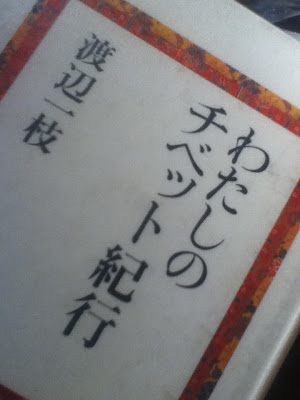 わたしの
チベット紀行
渡辺一枝